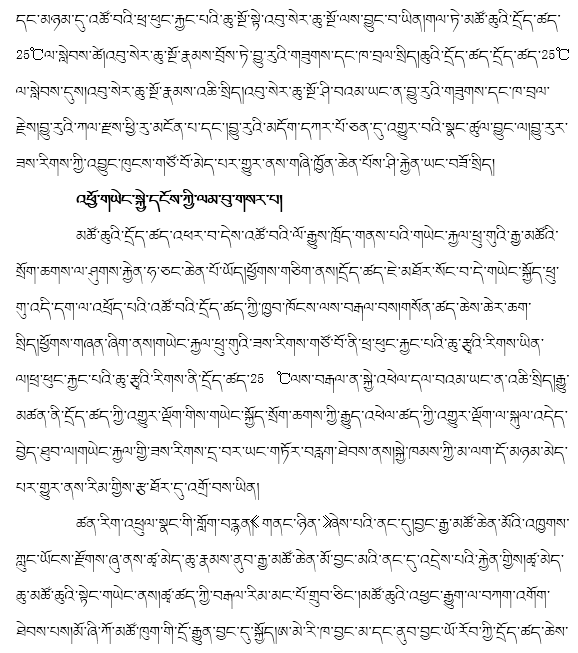 དང་མཉམ་དུ་འཚོ་བའི་ཕྲ་ཕུང་རྐྱང་པའི་ཆུ་སྔོ་སྟེ་འབུ་སེར་ཆུ་སྔོ་ལས་བྱུང་བ་ཡིན།གལ་ཏེ་མཚོ་ཆུའི་དྲོད་ཚད་
25℃ལ་སླེབས་ཚེ།འབུ་སེར་ཆུ་སྔོ་རྣམས་བྲོས་ཏེ་བྱུ་རུའི་གཟུགས་དང་ཁ་བྲལ་སྲིད།ཆུའི་དྲོད་ཚད་དྲོད་ཚད་25℃
ལ་སླེབས་དུས།འབུ་སེར་ཆུ་སྔོ་རྣམས་འཆི་སྲིད།འབུ་སེར་ཆུ་སྔོ་ཤི་བའམ་ཡང་ན་བྱུ་རུའི་གཟུགས་དང་ཁ་བྲལ་
རྗེས།བྱུ་རུའི་ཀལ་རྫས་ཕྱི་རུ་མངོན་པ་དང་།བྱུ་རུའི་མདོག་དཀར་པོ་ཅན་དུ་འགྱུར་བའི་སྣང་ཚུལ་བྱུང་ལ།བྱུ་རུར་
ཟས་རིགས་ཀྱི་འབྱུང་ཁུངས་གཙོ་བོ་མེད་པར་གྱུར་ནས་གཞི་ཁྱོན་ཆེན་པོས་ཤི་རྐྱེན་ཡང་བཟོ་སྲིད།
འཕྱོ་གཡེང་སྐྱེ་དངོས་ཀྱི་ལམ་བུ་གསར་པ།
མཚོ་ཆུའི་དྲོད་ཚད་འཕར་བ་དེས་འཚོ་བའི་ལོ་རྒྱུས་ཁྲོད་གནས་པའི་གཡེང་རྒྱལ་ཕྲུ་གུའི་རྒྱ་མཚོའི་
སྲོག་ཆགས་ལ་ཤུགས་རྐྱེན་ཧ་ཅང་ཆེན་པོ་ཡོད།ཕྱོགས་གཅིག་ནས།དྲོད་ཚད་ཇེ་མཐོར་སོང་བ་དེ་གཡེང་སྐྱོད་ཕྲུ་
གུ་འདི་དག་ལ་འཕྲོད་པའི་འཚོ་བའི་དྲོད་ཚད་ཀྱི་ཁྱབ་ཁོངས་ལས་བརྒལ་བས།གསོན་ཚད་ཆེས་ཆེར་ཆག་
སྲིད།ཕྱོགས་གཞན་ཞིག་ནས།གཡེང་རྒྱལ་ཕྲུ་གུའི་ཟས་རིགས་གཙོ་བོ་ནི་ཕྲ་ཕུང་རྐྱང་པའི་ཆུ་རྩྭའི་རིགས་ཡིན་
ལ།ཕྲ་ཕུང་རྐྱང་པའི་ཆུ་རྩྭའི་རིགས་ནི་དྲོད་ཚད་25 ℃ལས་བརྒལ་ན་སྐྱེ་འཕེལ་དལ་བའམ་ཡང་ན་འཆི་སྲིད།རྒྱུ་
མཚན་ནི་དྲོད་ཚད་ཀྱི་འགྱུར་ལྡོག་གིས་གཡེང་སྐྱོད་སྲོག་ཆགས་ཀྱི་རྒྱུད་འཕེལ་ཚད་ཀྱི་འགྱུར་ལྡོག་ལ་སྐུལ་འདེད་
བྱེད་ཐུབ་ལ།གཡེང་རྒྱལ་གྱི་ཟས་རིགས་དྲ་བར་ཡང་གཏོར་བརླག་ཐེབས་ནས།སྐྱེ་ཁམས་ཀྱི་མ་ལག་དོ་མཉམ་མེད་
པར་གྱུར་ནས་རིམ་གྱིས་རྩ་ཐོར་དུ་འགྲོ་བས་ཡིན།
ཚན་རིག་འཕྲུལ་སྣང་གི་གློག་བརྙན《གནང་ཉིན་》ཞེས་པའི་ནང་དུ།བྱང་རྒྱ་མཚོ་ཆེན་མོའི་འཁྱགས་
ཀླུང་ཡོངས་རྫོགས་ཞུ་ནས་ཚྭ་མེད་ཆུ་རྣམས་ནུབ་རྒྱ་མཚོ་ཆེན་མོ་བྱང་མའི་ནང་དུ་འདྲེས་པའི་རྐྱེན་གྱིས།ཚྭ་མེད་
ཆུ་མཚོ་ཆུའི་སྟེང་གཡེང་ནས།ཚྭ་ཚད་ཀྱི་བརྒལ་རིམ་མང་པོ་གྲུབ་ཅིང་།མཚོ་ཆུའི་འཕྱང་རྒྱུག་ལ་བཀག་འགོག་
ཐེབས་པས།མོ་ཞི་ཀོ་མཚོ་ཁུག་གི་དྲོ་རྒྱུན་བྱང་དུ་སྐྱོད།ཨ་མེ་རི་ཁ་བྱང་མ་དང་ནུབ་བྱང་ཡོ་རོབ་ཀྱི་དྲོད་ཚད་ཆེས་